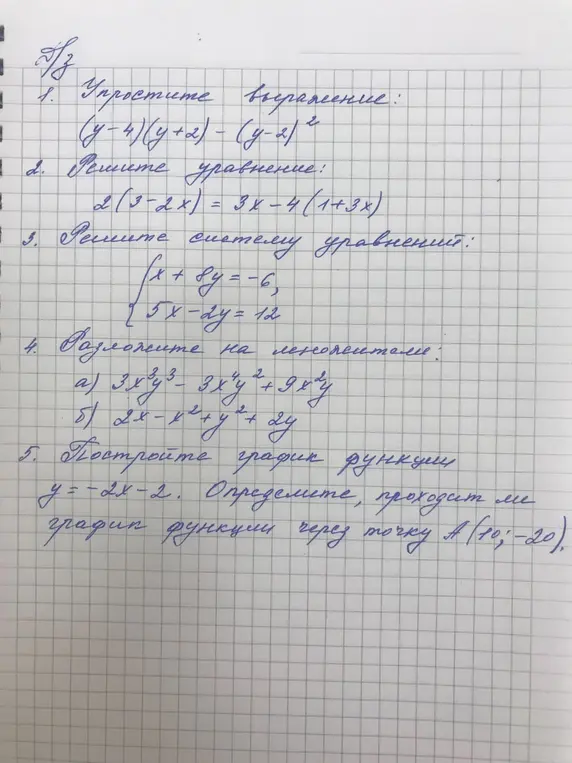 Д/з
1. Упростите выражение:
(y-4)(y+2) - (y-2)²
2. Решите уравнение:
2(3-2x) = 3x-4(1+3x)
3. Решите систему уравнений:
{x + 8y = -6,
5x - 2y = 12
4. Разложите на множители:
а) 3x³y³ - 3x⁴y² + 9x²y
б) 2x - x² + y² + 2y
5. Постройте график функции
y = -2x - 2. Определите, проходит ли
график функции через точку А(10; -20).